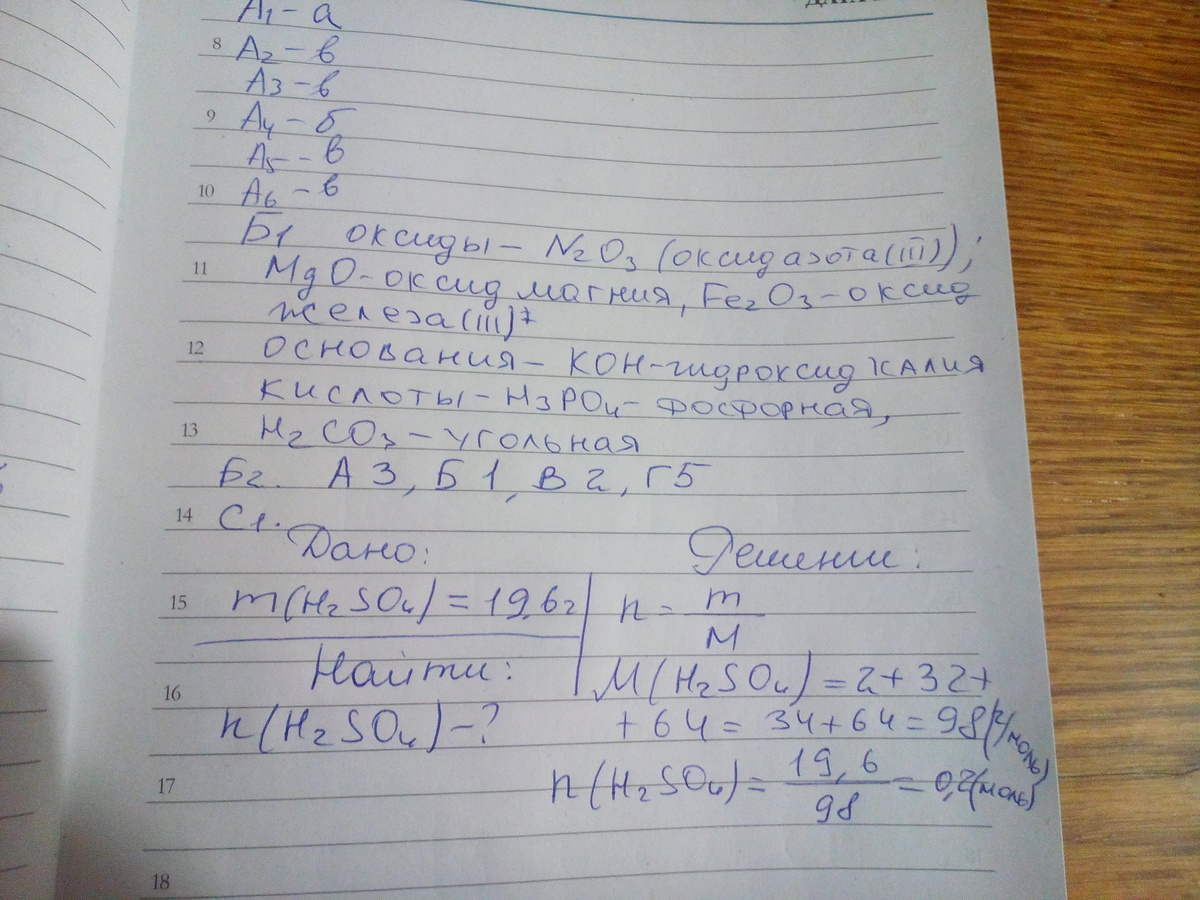 А1 - а
8 А2 - в
А3 - в
9 А4 - б
А5 - в
10 А6 - в
Б1 оксиды - N2O3 (оксид азота(III));
11 MgO - оксид магния, Fe2O3 - оксид
железа(III)
12 основания - KOH - гидроксид калия
кислоты - H3PO4 - фосфорная,
13 H2CO3 - угольная
Б2. А3, Б1, В2, Г5
14 С1.
Дано: Решении:
15 m(H2SO4) = 19,6г n = m/M
Найти:
16 M(H2SO4) = 2 + 32 +
n(H2SO4) - ? + 64 = 34 + 64 = 98(г/моль)
17 n(H2SO4) = 19,6/98 = 0,2(моль)
18